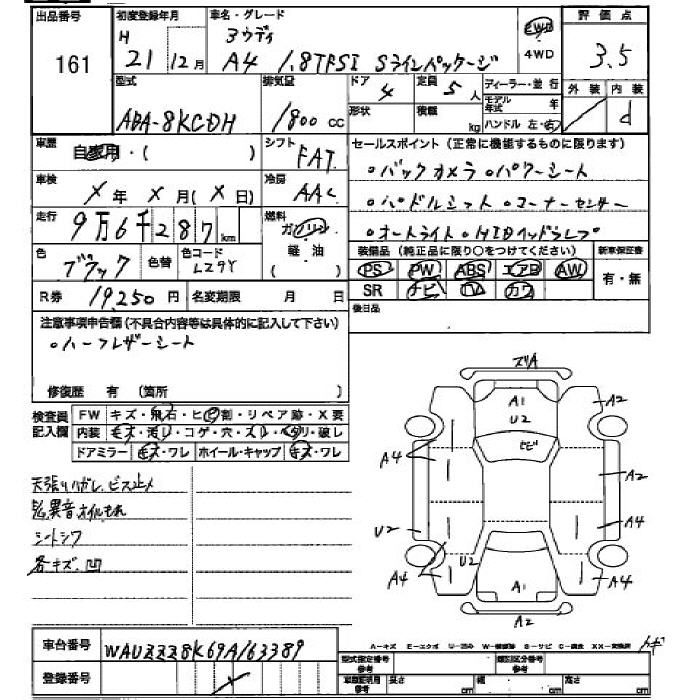 出品番号
161
初度登録年月
H
21 12月
車名・グレード
アウディ
A4 1.8TFSI Sラインパッケージ
2WD
4WD
評価点
3.5
外装 内装
d
型式
ABA-8KCDH
排気量
1800 cc
ドア
4
定員
5 人
形状
積載
kg
ディーラー・並行
モデル年式 年
ハンドル 左・右
車歴
自家用・( )
シフト
FAT
セールスポイント(正常に機能するものに限ります)
。バックカメラ 。パワーシート
。パドルシフト 。コーナーセンサー
。オートライト 。HIDヘッドランプ
車検
X年 X月(X日)
冷房
AAC
走行
9万6千287km
燃料
ガソリン
軽・油
( )
色
ブラック
色替
色コード
LZ9Y
装備品(純正品に限り○をつけてください)
新車保証書
PS PW ABS エアB AW
SR ナビ TV カワ
有・無
R券
19,250円
名変期限 月 日
後日品
注意事項申告欄(不具合内容等は具体的に記入して下さい)
。ハーフレザーシート
修復歴 有(箇所 )
検査員記入欄
FW キズ・飛石・ヒビ割・リペア跡・X要
内装 キズ・汚レ・コゲ・穴・スレ・ヘタリ・破レ
ドアミラー キズ・ワレ ホイール・キャップ キズ・ワレ
天張りハガレ、ビス止メ
シートシワ
各キズ、凹
ズリA
A1
U2
A2
ヒビ
A4
A2
U2
A4
U2
A4
A1
A4
A2
A-キズ E-エクボ U-凹み W-補修跡 S-サビ C-腐食 XX-交換済
車台番号
WAUZZZ8K69A163389
登録番号
型式指定番号
参考
類別区分番号
参考
車庫証明用
参考
長さ cm
幅 cm
高さ cm